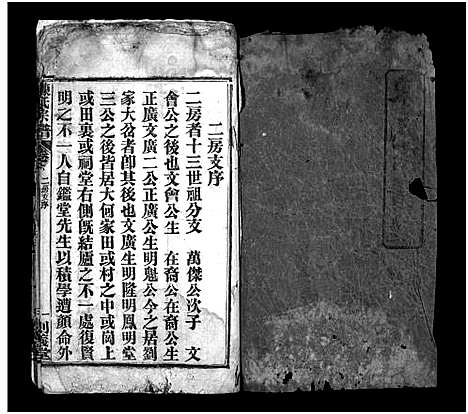 二房支序
二房者十三世祖分支　萬傑公次子　文
會公之後也文會公生　在裔公在裔公生
正廣文廣二公正廣公生明魁公今之居劉
家大岔者卽其後也文廣生明隆明鳳明堂
三公之後皆居大何家田或村之中或崗上
或田裏或祠堂右側旣結廬之不一處復賢
明之不一人自鑑堂先生以積學遭顏命外
氏宗譜
二房支序
義堂